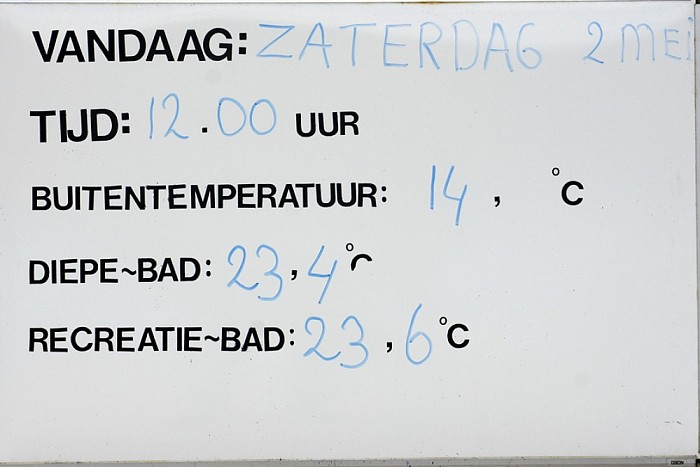 VANDAAG: ZATERDAG 2 MEI
TIJD: 12.00 UUR
BUITENTEMPERATUUR: 14, °C
DIEPE~BAD: 23,4°C
RECREATIE~BAD: 23,6°C